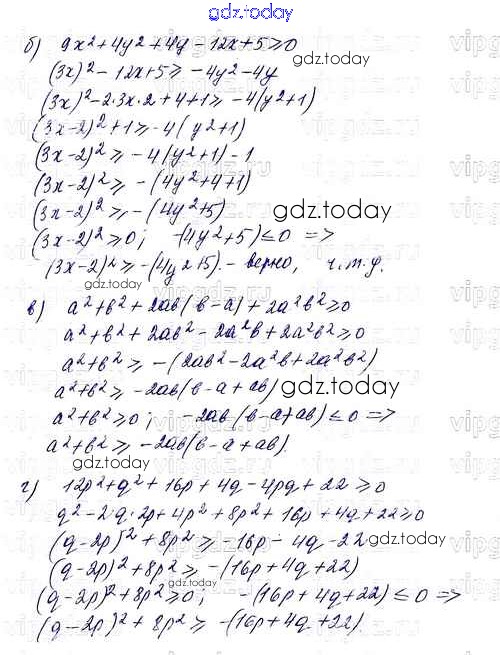 gdz.today
б) 9x²+4y²+4y-12x+5≥0
gdz.today
(3x)²-12x+5≥-4y²-4y
(3x)²-2·3x·2+4+1≥-4(y²+1)
(3x-2)²+1≥-4(y²+1)
(3x-2)²≥-4(y²+1)-1
(3x-2)²≥-(4y²+4+1)
(3x-2)²≥-(4y²+5)
gdz.today
(3x-2)²≥0; -(4y²+5)≤0 =>
(3x-2)²≥-(4y²+5).-верно, ч.т.д.
gdz.today
в) a²+b²+2ab(b-a)+2a²b²≥0
a²+b²+2ab²-2a²b+2a²b²≥0
a²+b²≥-(2ab²-2a²b+2a²b²)
a²+b²≥-2ab(b-a+ab)
gdz.today
a²+b²≥0; -2ab(b-a+ab)≤0 =>
a²+b²≥-2ab(b-a+ab).
gdz.today
г) 12p²+q²+16p+4q-4pq+22≥0
q²-2·q·2p+4p²+8p²+16p+4q+22≥0
(q-2p)²+8p²≥-16p-4q-22
gdz.today
(q-2p)²+8p²≥-(16p+4q+22)
gdz.today
(q-2p)²+8p²≥0; -(16p+4q+22)≤0 =>
(q-2p)²+8p²≥-(16p+4q+22)